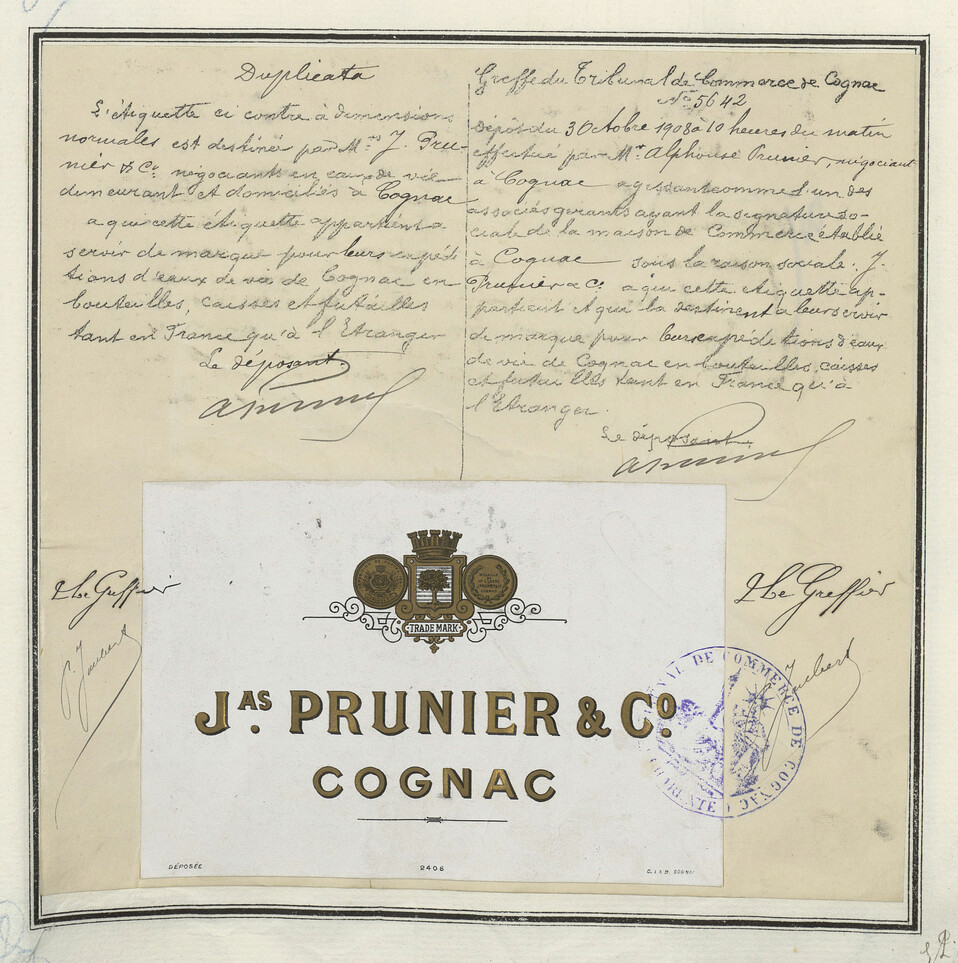 Duplicata
L'étiquette ci contre à dimensions
normales est destinée par Mrs J. Pru-
nier & Co. négociants en eaux de vie
demeurant et domiciliés à Cognac
a qui cette étiquette appartient a
servir de marque pour leurs expédi
tions d'eaux de vie de Cognac en
bouteilles, caisses et futailles
tant en France qu'à l'Etranger
Le déposant.
Greffe du Tribunal de Commerce de Cognac
No 5642
Dépôt du 3 Octobre 1908 à 10 heures du matin
effectué par Mr. Alphonse Prunier, négociant
à Cognac agissant comme l'un des
associés gérants ayant la signature so-
ciale de la maison de Commerce établie
à Cognac sous la raison sociale: J.
Prunier & Co. à qui cette étiquette ap-
partient et qui la destinent a leur servir
de marque pour leurs expéditions d'eaux
de vie de Cognac en bouteilles, caisses
et futailles tant en France qu'à
l'Etranger.
Le déposant.
Le Greffier
P. Joubert
Le Greffier
Joubert
TRADE MARK
JAS. PRUNIER & Co.
COGNAC
TRIBUNAL DE COMMERCE DE COGNAC
CHARENTE
DÉPOSÉE
2408